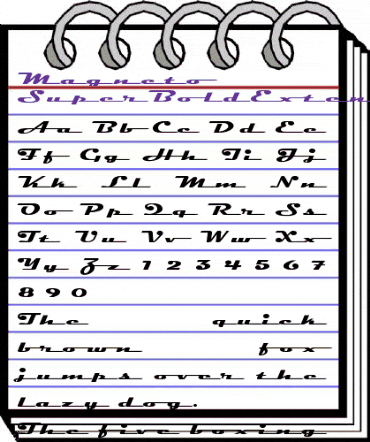 Magneto
SuperBoldExten
Aa Bb Cc Dd Ee
Ff Gg Hh Ii Jj
Kk Ll Mm Nn
Oo Pp Qq Rr Ss
Tt Uu Vv Ww Xx
Yy Zz 1 2 3 4 5 6 7
8 9 0
The quick
brown fox
jumps over the
lazy dog.
The five boxing